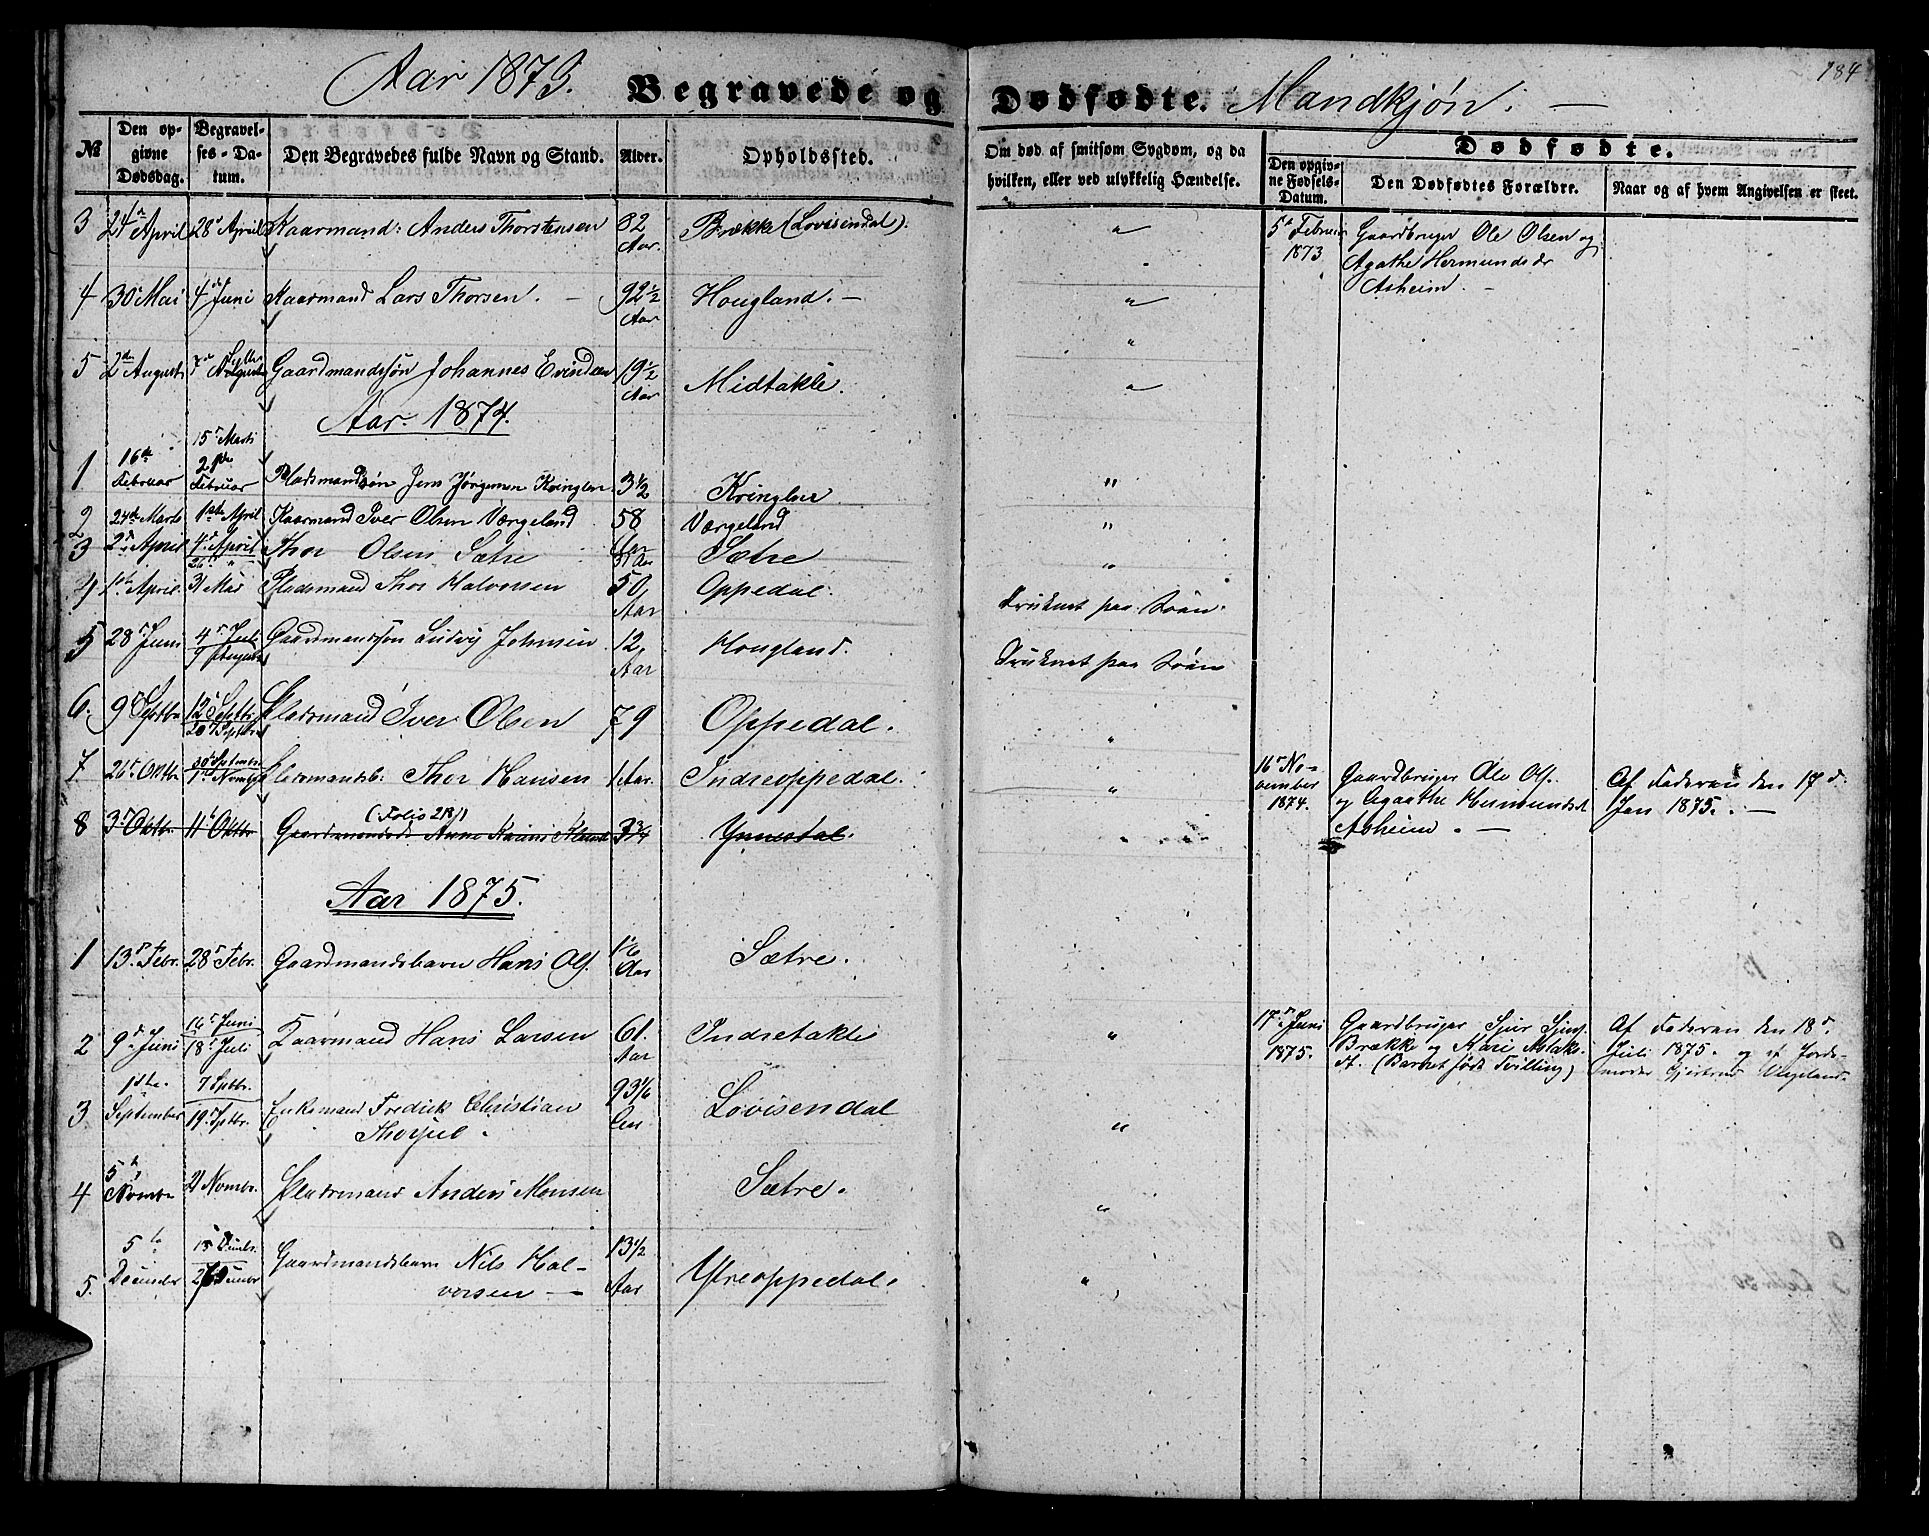 184
Aar 1873. Begravede og Dødfødte. Mandkjøn. —
No
Den opgivne Dødsdag.
Begravelses-Datum.
Den Begravedes fulde Navn og Stand.
Alder.
Opholdssted.
Om død af smitsom Sygdom, og da hvilken, eller ved ulykkelig Hændelse.
Dødfødte.
Den opgivne Fødsels-Datum.
Den Dødfødtes Forældre.
Naar og af hvem Angivelsen er skeet.
3 24de April 28de April Kaarmand: Anders Thorstensen 82 Aar. Brække (Lovisendal). "
5te Februar 1873 Gaardbruger Ole Olsen og
Agathe Hermundsdr
Asheim. —
4 30te Mai 4de Juni Kaarmand Lars Thorsen. — 92 1/2 Aar Hougland. — "
5 2den August 7de August Gaardmandssøn Johannes Evindsen 19 1/2 Aar Midtakle. "
Aar 1874.
1 16de Februar 15de Marts 21de Februar Pladsmandssøn Jens Jørgensen Kringlen 3 1/2 Kringlen "
2 24de Marts 1ste April Kaarmand Iver Olsen Værgeland 58 Aar Værgeland "
3 2den April 4de April 26de " Thor Olsen Sætre Aar Sætre "
4 1ste April 31 Mai Pladsmand Thor Halvorsen 50 Aar Oppedal. Druknet paa Søen.
5 28de Juni 4de Juli 9 August Gaardmandssøn Ludvig Johnsen 12 Aar Hougland. Druknet paa Søen
6. 9de Septbr 12te Septbr 20de Septbr Pladsmand Iver Olsen 79 Oppedal. "
7 26de Oktbr 30de Septembr 1ste Novbr Pladsmandsb. Thor Hansen 1 Aar. Indreoppedal. "
16de November 1874. Gaardbruger Ole Ols.
og Agathe Hermundsdt
Asheim. —
Af Faderen den 17de
Jan 1875. —
(Folio 218)
8 3de Oktbr 11te Oktbr Gaardmandsdt. Anna 3 3/4 Ynnesdal. "
Aar 1875.
1 13de Febr. 28de Febr. Gaardmandsbarn Hans Ols. 1/6 Aar Sætre. "
2 9de Juni 16de Juni 18de Juli Kaarmand Hans Larsen 61. Aar Indretakle "
17de Juni 1875. Gaardbruger Sjur Sjurs.
Brække og Kari Aslaks-
dt. (Barnet født Tvilling)
Af Faderen den 18de
Juli 1875. og af Jorde-
moder Gjertrud
3 1ste September 7 Septbr. 19de Septbr. Enkemand Fredrik Christian 93 1/6 Lovisendal "
4 5te Novmbr 21 Novmbr. Pladsmand Anders Monsen Sætre. "
5. 5te December 13 Decmbr. 26 Decmbr Gaardmandsbarn Nils Hal-
vorsen — 13 1/2 Aar Ytreoppedal. "